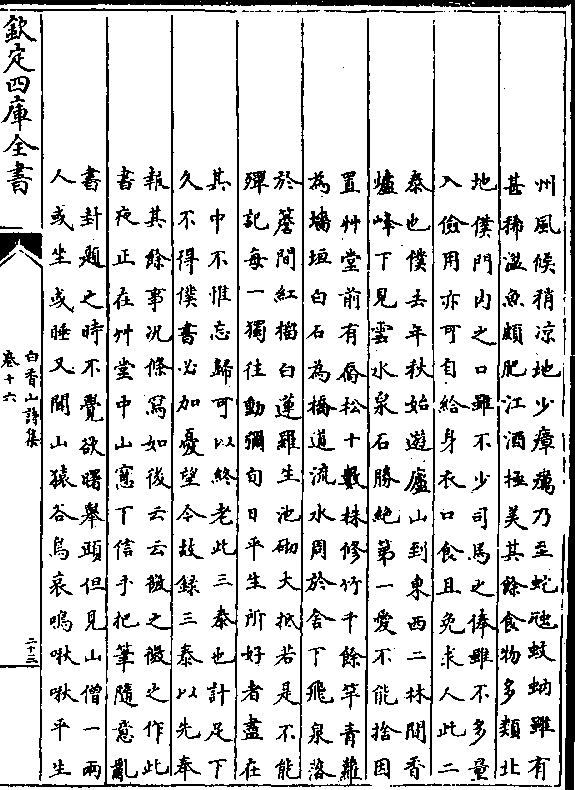 州風候稍凉地少瘴癘乃至蛇虺蚊蚋雖有
甚稀湓魚頗肥江酒極美其餘食物多類北
地僕門内之口雖不少司馬之俸雖不多量
入儉用亦可自給身衣口食且免求人此二
泰也僕去年秋始遊廬山到東西二林間香
爐峰下見雲水泉石勝絶第一愛不能捨因
置艸堂前有喬松十數株修竹千餘竿青蘿
為墻垣白石為橋道流水周於舍下飛泉落
於簷間紅榴白蓮羅生池砌大抵若是不能
殫記每一獨往動彌旬日平生所好者盡在
其中不惟忘歸可以終老此三泰也計足下
久不得僕書必加憂望今故録三泰以先奉
報其餘事况條寫如後云云微之微之作此
書夜正在艸堂中山窻下信手把筆隨意亂
書封題之時不覺欲曙舉頭但見山僧一兩
人或坐或睡又聞山猿谷鳥哀鳴啾啾平生
欽定四庫全書
白香山詩集
卷十六
二十三